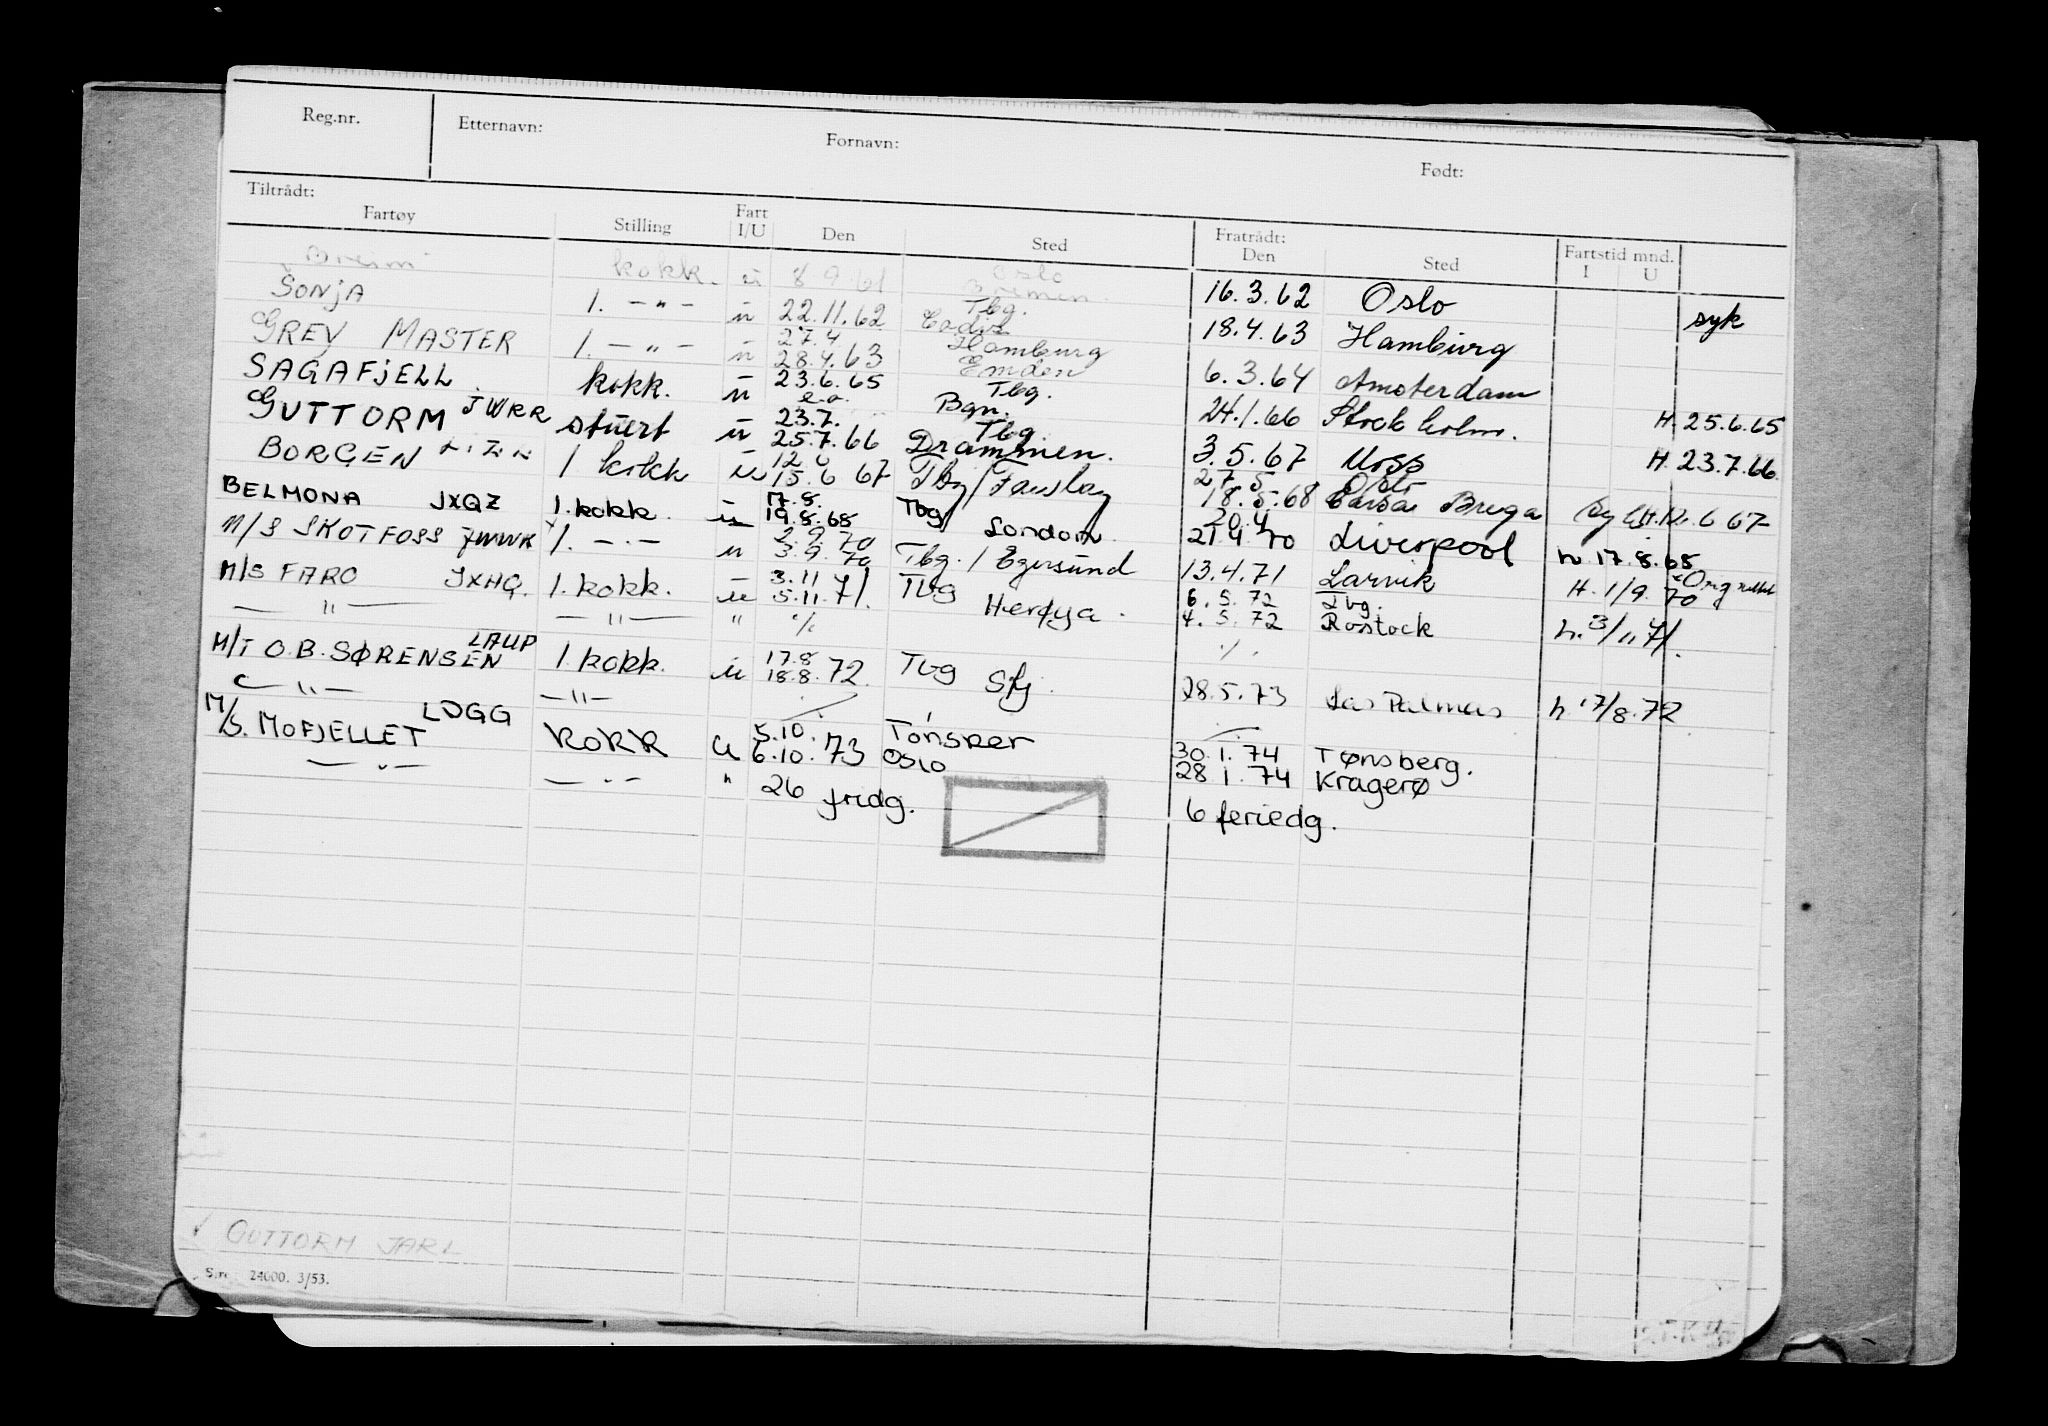 Reg.nr. Etternavn: Fornavn: Født:
Tiltrådt: Fratrådt:
Fartøy Stilling Fart I/U Den Sted Den Sted Fartstid mnd. I U
kokk. u 8.9.61 Oslo Bremen 16.3.62 Oslo syk
SONJA 1. — " — u 22.11.62 Tbg. Cadiz 18.4.63 Hamburg
GREY MASTER 1. — " — u 27.4 28.4.63 Hamburg Emden 6.3.64 Amsterdam
SAGAFJELL JWRR kokk. u 23.6.65 e.o. Tbg. Bgn. 24.1.66 Stockholm. H. 25.6.65
GUTTORM stuert u 23.7. 25.7.66 Tbg. Drammen. 3.5.67 Moss H. 23.7.66
BORGEN 1 kokk u 15.6 67 Tbg/ 27.5 18.5.68 Oslo Brega
BELMONA JXQZ 1. kokk. u 17.8. 19.8.68 Tbg London 20.4 21.4.70 Liverpool h. 17.8.68
M/S SKOTFOSS 1. — . — u 2.9.70 3.9.70 Tbg. / Egersund 13.4.71 Larvik H. 1/9. 70
M/S FARO JXHQ. 1. kokk. u 3.11 5.11.71. Tbg Herøya. 6.5.72 Tbg. h. 3/11 71.
— " — — " — " ./. 4.5.72 Rostock
M/T O.B. SØRENSEN LAUP 1. kokk. u 17.8 18.8.72. Tbg Sfj. 28.5.73 Las Palmas h. 17/8.72
— " — — " —
M/S. MOFJELLET LDGG KOKK U 5.10. 6.10.73 Tønsber Oslo 30.1.74 Tønsberg.
— " — — " — " 28 1.74 Kragerø
26 fridg. 6 feriedg.
✓ GUTTORM JARL
24000. 3/53.